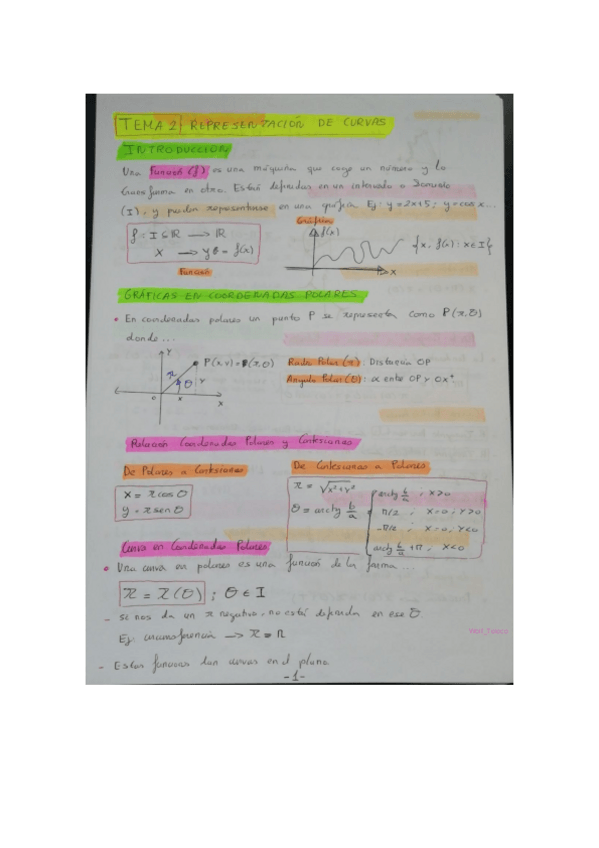 TEMA 2 REPRESENTACIÓN DE CURVAS
INTRODUCCIÓN
Una Función (f) es una máquina que coge un número y lo
transforma en otro. Están definidas en un intervalo o Dominio
(I), y pueden representarse en una gráfica Ej: y=2x+5; y=cos x...
f: I⊆R → R
x → y = f(x)
Función
Gráfica
f(x)
x
{x, f(x): x∈I}
GRÁFICAS EN COORDENADAS POLARES
• En coordenadas polares un punto P se representa como P(r,θ)
donde...
Y
P(x,y)=P(r,θ)
r
θ
Y
O
x
X
Radio Polar (r): Distancia OP
Angulo Polar (θ): α entre OP y Ox⁺
Relación Coordenadas Polares y Cartesianas
De Polares a Cartesianas
x = r cos θ
y = r sen θ
De Cartesianas a Polares
r = √x²+y²
θ = arctg b/a
arctg b/a , x>0
π/2 , x=0, y>0
-π/2 , x=0, y<0
arctg b/a +π, x<0
Curva en Coordenadas Polares
• Una curva en polares es una función de la forma...
r = r(θ) ; θ ∈ I
- si nos da un r negativo, no está definida en ese θ
Ej: circunsferencia → r = R
- Estas funciones dan curvas en el plano.
-1-